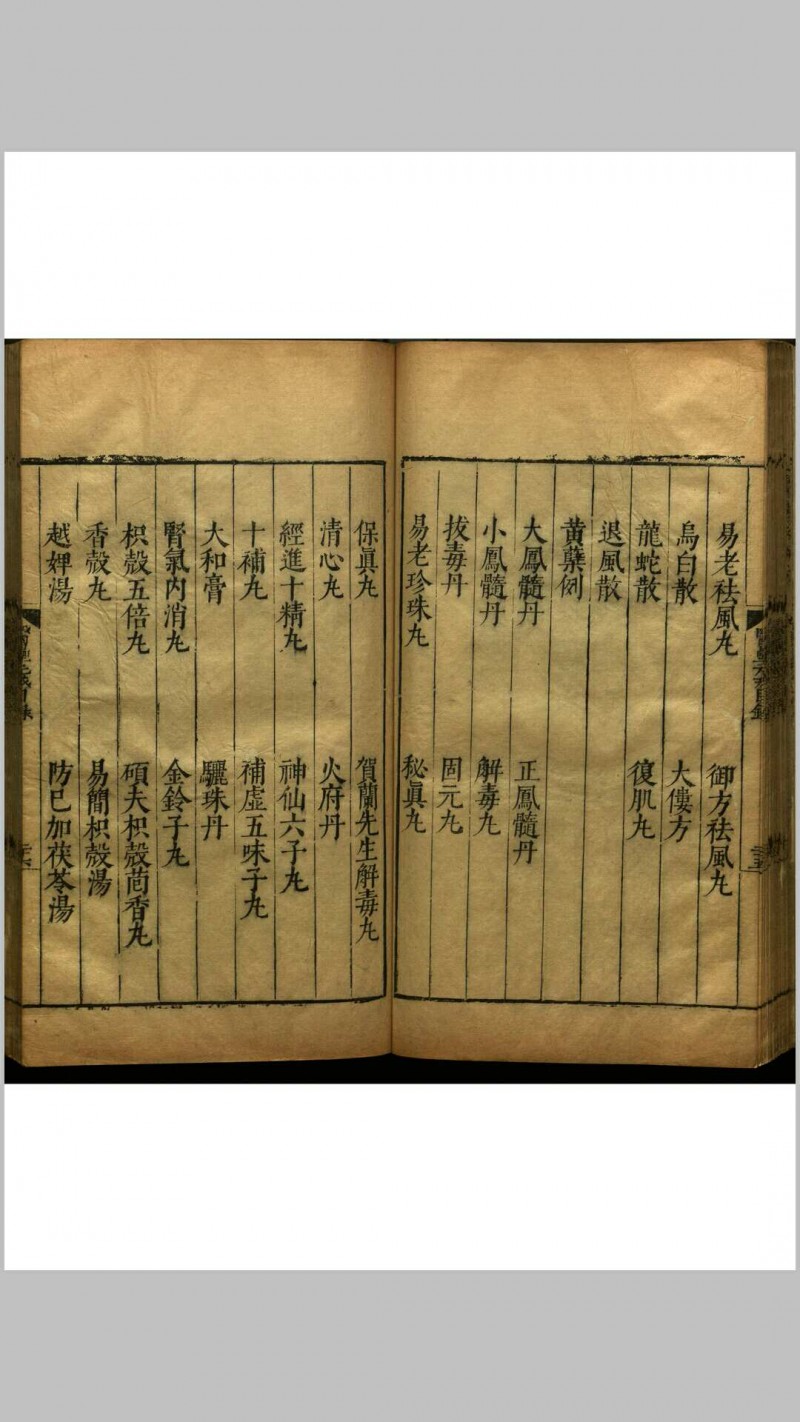 易老祛風丸　御方祛風丸
烏白散　大僂方
龍蛇散　復肌丸
退風散
黃蘗例
大鳳髓丹　正鳳髓丹
小鳳髓丹　解毒丸
拔毒丹　固元丸
易老珍珠丸　秘眞丸
保眞丸　賀蘭先生解毒丸
清心丸　火府丹
經進十精丸　神仙六子丸
十補丸　補虛五味子丸
大和膏　驪珠丹
腎氣內消丸　金鈴子丸
枳殼五倍丸　碩夫枳殼茴香丸
香殼丸　易簡枳殼湯
越婢湯　防已加茯苓湯